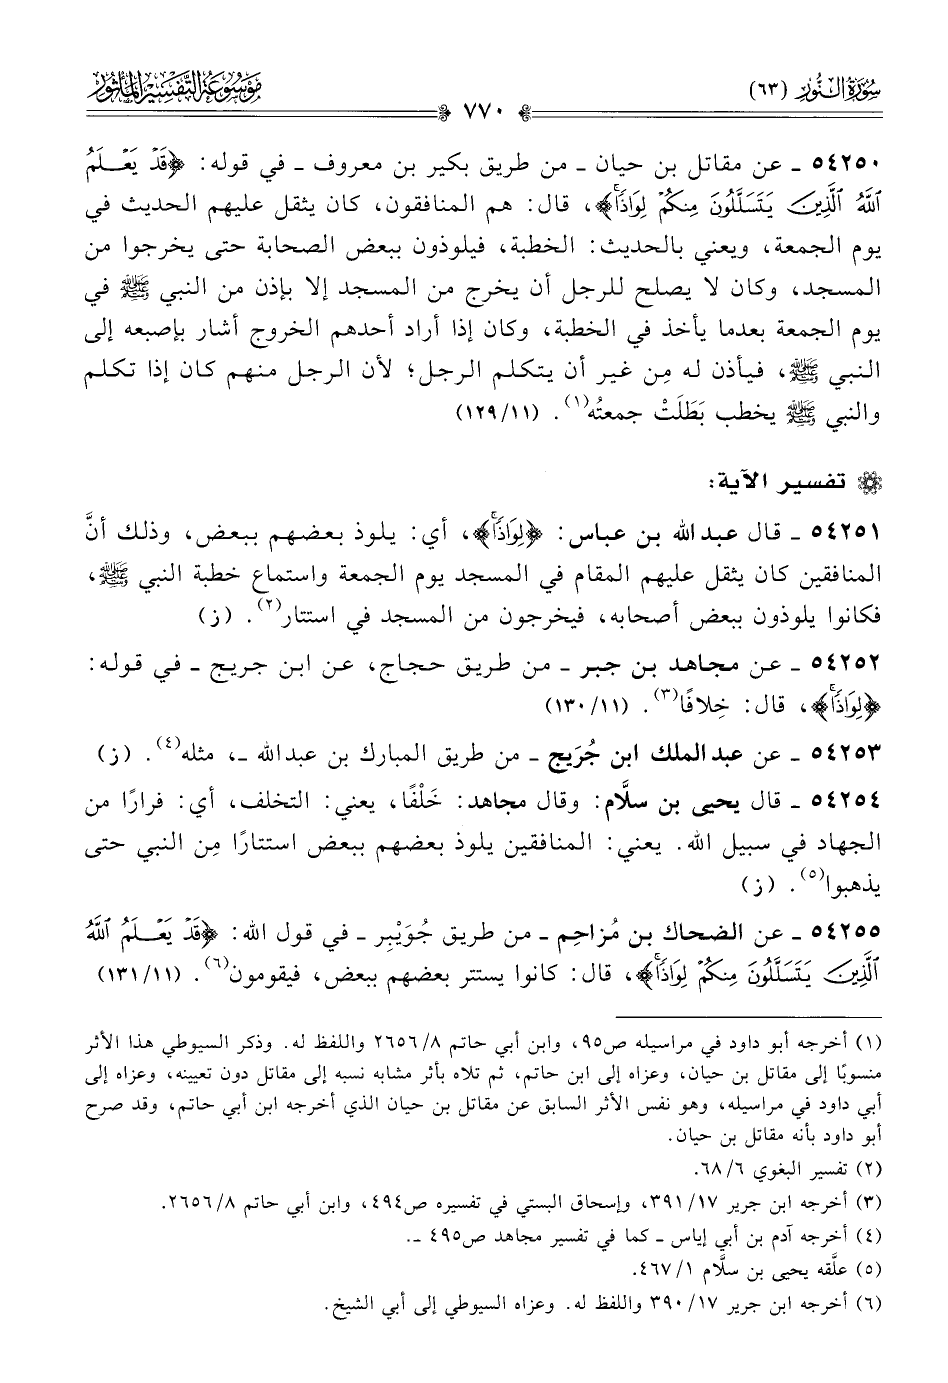 سُورَةُ النُّورِ (٦٣)
موسوعة التفسير المأثور
٧٧٠
٥٤٢٥٠ ـ عن مقاتل بن حيان ـ من طريق بكير بن معروف ـ في قوله: ﴿قَدْ يَعْلَمُ
ٱللَّهُ ٱلَّذِينَ يَتَسَلَّلُونَ مِنكُمْ لِوَاذًا﴾، قال: هم المنافقون، كان يثقل عليهم الحديث في
يوم الجمعة، ويعني بالحديث: الخطبة، فيلوذون ببعض الصحابة حتى يخرجوا من
المسجد، وكان لا يصلح للرجل أن يخرج من المسجد إلا بإذن من النبي ﷺ في
يوم الجمعة بعدما يأخذ في الخطبة، وكان إذا أراد أحدهم الخروج أشار بإصبعه إلى
النبي ﷺ، فيأذن له مِن غير أن يتكلم الرجل؛ لأن الرجل منهم كان إذا تكلم
والنبي ﷺ يخطب بَطَلَتْ جمعتُه(١). (١٢٩/١١)
تفسير الآية:
٥٤٢٥١ ـ قال عبد الله بن عباس: ﴿لِوَاذًا﴾، أي: يلوذ بعضهم ببعض، وذلك أنَّ
المنافقين كان يثقل عليهم المقام في المسجد يوم الجمعة واستماع خطبة النبي ﷺ،
فكانوا يلوذون ببعض أصحابه، فيخرجون من المسجد في استتار(٢). (ز)
٥٤٢٥٢ ـ عن مجاهد بن جبر ـ من طريق حجاج، عن ابن جريج ـ في قوله:
﴿لِوَاذًا﴾، قال: خِلافًا(٣). (١٣٠/١١)
٥٤٢٥٣ ـ عن عبد الملك ابن جُرَيج ـ من طريق المبارك بن عبد الله ـ، مثله(٤). (ز)
٥٤٢٥٤ ـ قال يحيى بن سلَّام: وقال مجاهد: خَلْفًا، يعني: التخلف، أي: فرارًا من
الجهاد في سبيل الله. يعني: المنافقين يلوذ بعضهم ببعض استتارًا مِن النبي حتى
يذهبوا(٥). (ز)
٥٤٢٥٥ ـ عن الضحاك بن مُزاحِم ـ من طريق جُوَيْبِر ـ في قول الله: ﴿قَدْ يَعْلَمُ ٱللَّهُ
ٱلَّذِينَ يَتَسَلَّلُونَ مِنكُمْ لِوَاذًا﴾، قال: كانوا يستتر بعضهم ببعض، فيقومون(٦). (١٣١/١١)
(١) أخرجه أبو داود في مراسيله ص٩٥، وابن أبي حاتم ٢٦٥٦/٨ واللفظ له. وذكر السيوطي هذا الأثر
منسوبًا إلى مقاتل بن حيان، وعزاه إلى ابن حاتم، ثم تلاه بأثر مشابه نسبه إلى مقاتل دون تعيينه، وعزاه إلى
أبي داود في مراسيله، وهو نفس الأثر السابق عن مقاتل بن حيان الذي أخرجه ابن أبي حاتم، وقد صرح
أبو داود بأنه مقاتل بن حيان.
(٢) تفسير البغوي ٦٨/٦.
(٣) أخرجه ابن جرير ٣٩١/١٧، وإسحاق البستي في تفسيره ص٤٩٤، وابن أبي حاتم ٢٦٥٦/٨.
(٤) أخرجه آدم بن أبي إياس ـ كما في تفسير مجاهد ص٤٩٥ ـ.
(٥) علَّقه يحيى بن سلَّام ٤٦٧/١.
(٦) أخرجه ابن جرير ٣٩٠/١٧ واللفظ له. وعزاه السيوطي إلى أبي الشيخ.